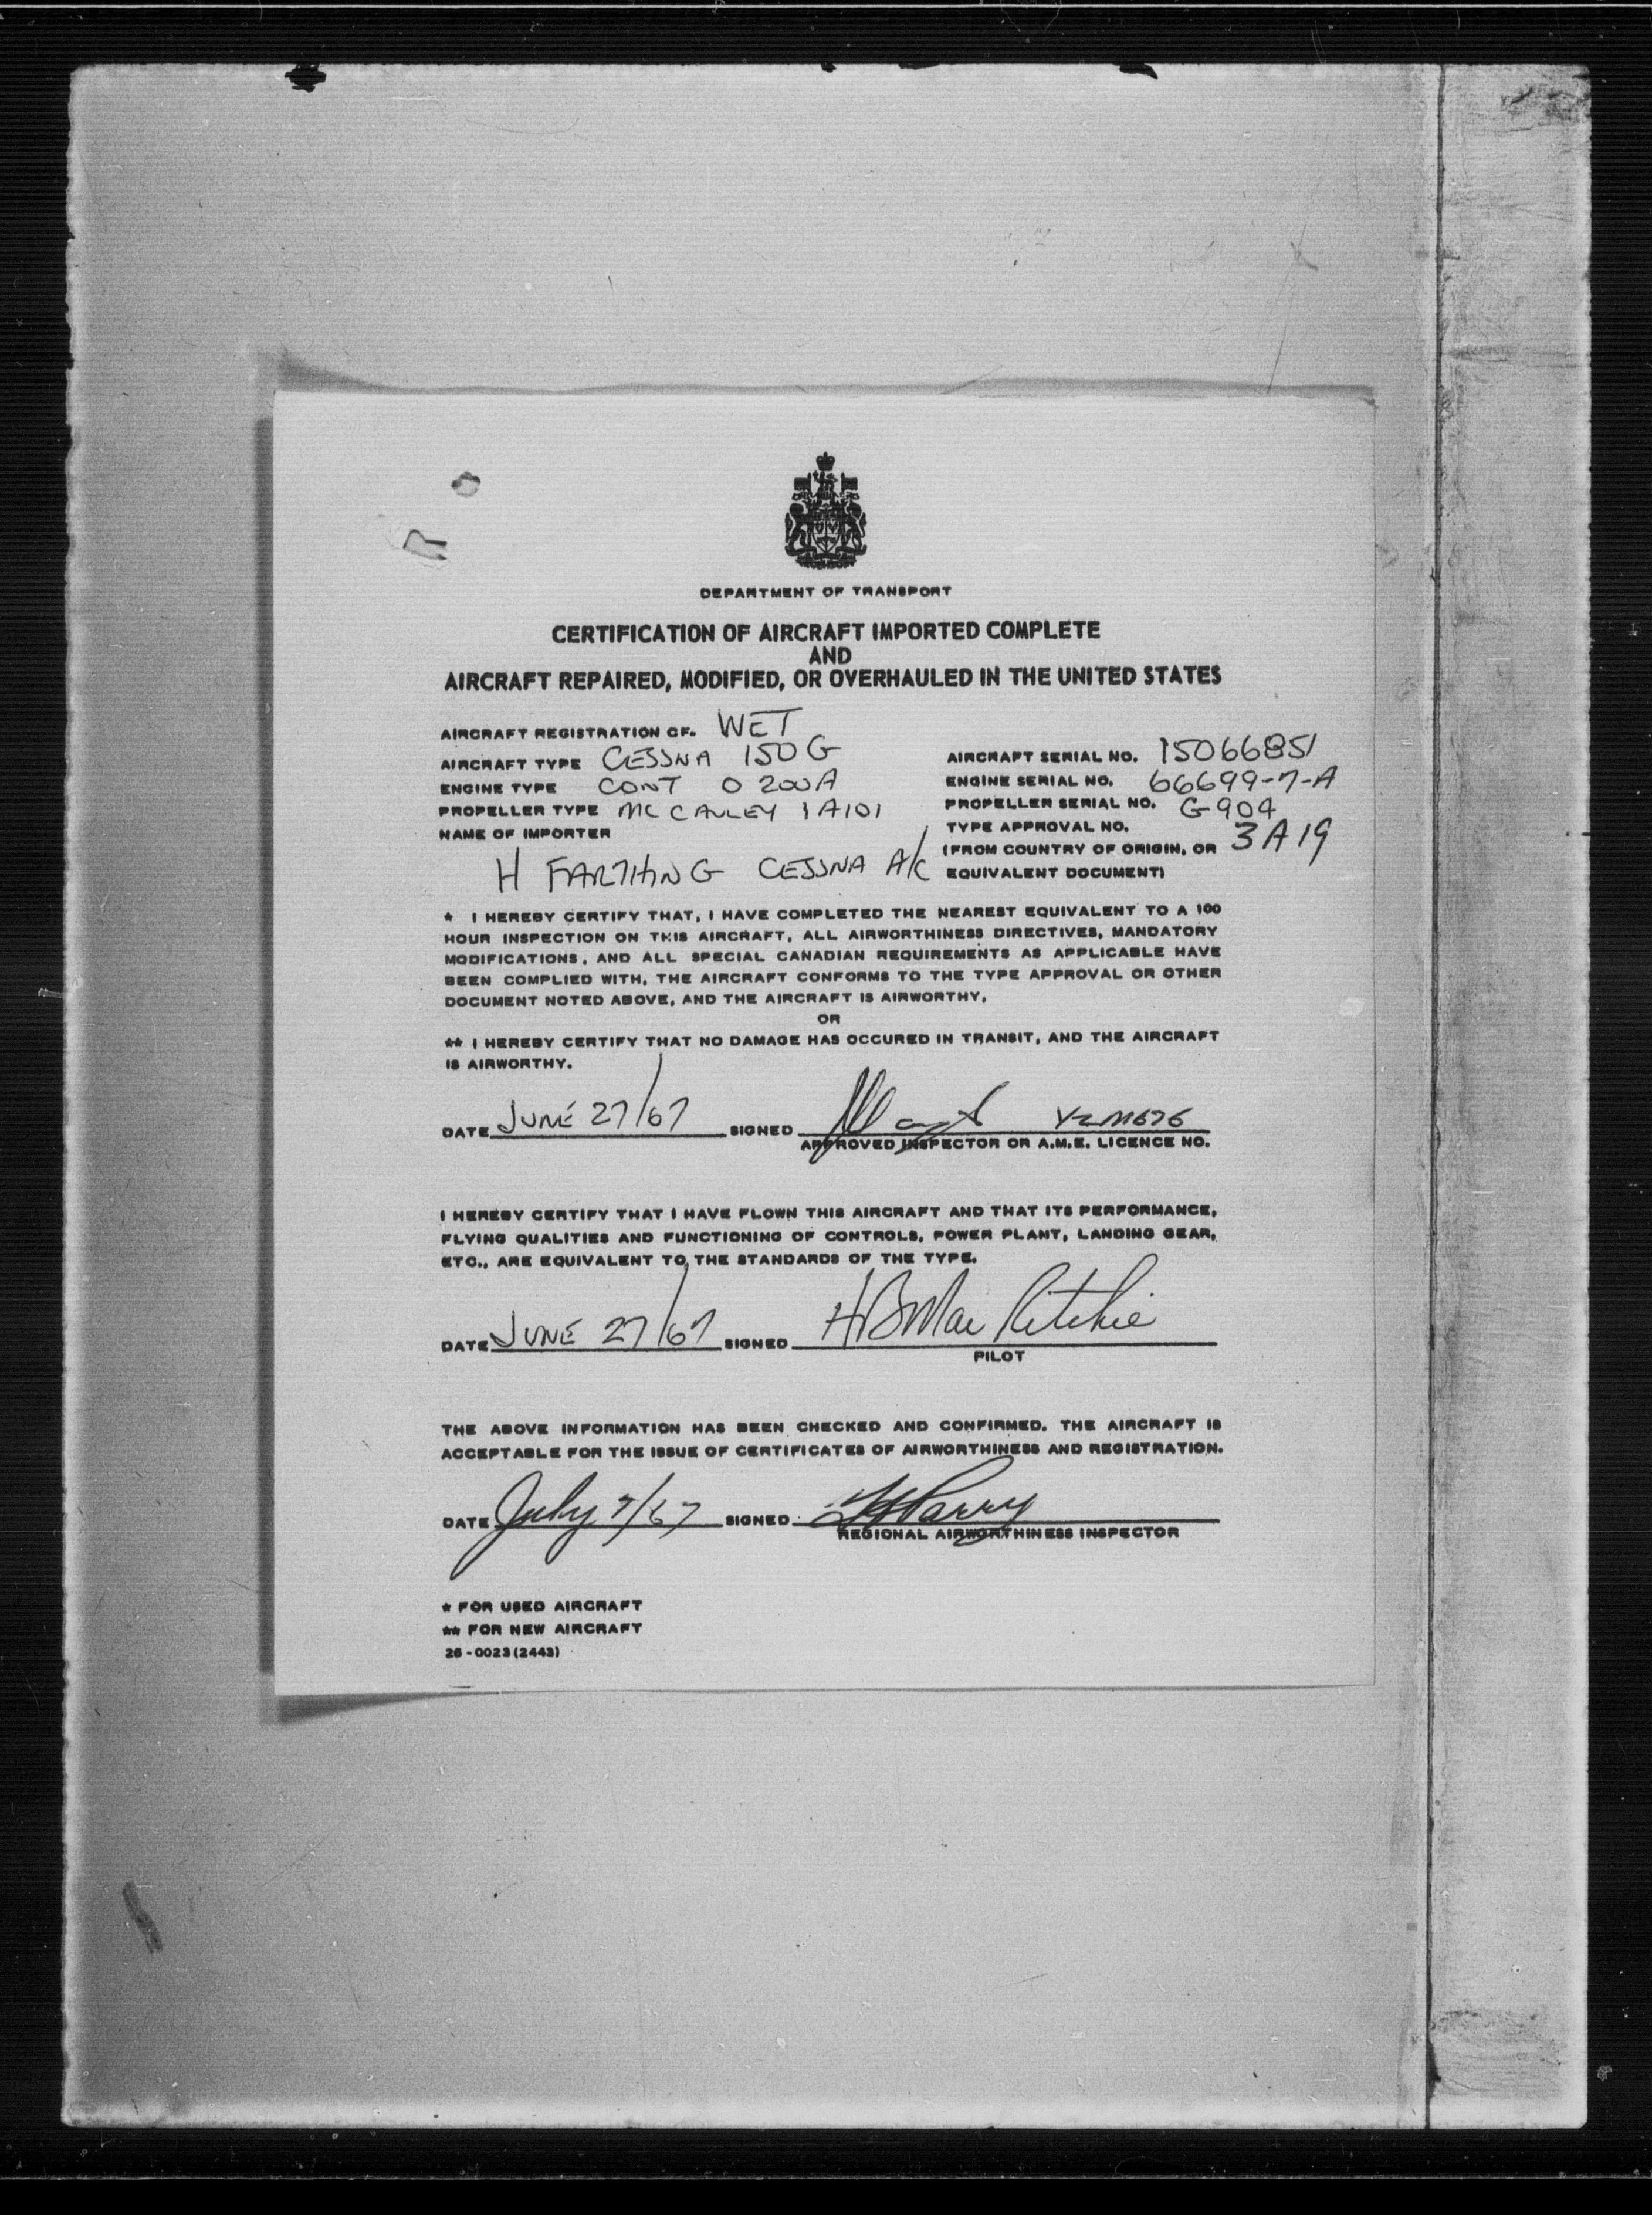 DEPARTMENT OF TRANSPORT
CERTIFICATION OF AIRCRAFT IMPORTED COMPLETE
AND
AIRCRAFT REPAIRED, MODIFIED, OR OVERHAULED IN THE UNITED STATES
AIRCRAFT REGISTRATION CF. WET
AIRCRAFT TYPE CESSNA 150G AIRCRAFT SERIAL NO. 15066851
ENGINE TYPE CONT O 200A ENGINE SERIAL NO. 66699-7-A
PROPELLER TYPE MC CAULEY 1A101 PROPELLER SERIAL NO. G904
NAME OF IMPORTER TYPE APPROVAL NO.
(FROM COUNTRY OF ORIGIN, OR 3A19
H FARTHING CESSNA A/C EQUIVALENT DOCUMENT)
* I HEREBY CERTIFY THAT, I HAVE COMPLETED THE NEAREST EQUIVALENT TO A 100
HOUR INSPECTION ON THIS AIRCRAFT, ALL AIRWORTHINESS DIRECTIVES, MANDATORY
MODIFICATIONS, AND ALL SPECIAL CANADIAN REQUIREMENTS AS APPLICABLE HAVE
BEEN COMPLIED WITH, THE AIRCRAFT CONFORMS TO THE TYPE APPROVAL OR OTHER
DOCUMENT NOTED ABOVE, AND THE AIRCRAFT IS AIRWORTHY.
OR
** I HEREBY CERTIFY THAT NO DAMAGE HAS OCCURED IN TRANSIT, AND THE AIRCRAFT
IS AIRWORTHY.
DATE JUNE 27/67 SIGNED
APPROVED INSPECTOR OR A.M.E. LICENCE NO.
I HEREBY CERTIFY THAT I HAVE FLOWN THIS AIRCRAFT AND THAT ITS PERFORMANCE,
FLYING QUALITIES AND FUNCTIONING OF CONTROLS, POWER PLANT, LANDING GEAR,
ETC., ARE EQUIVALENT TO THE STANDARDS OF THE TYPE.
DATE JUNE 27/67 SIGNED HB MacRitchie
PILOT
THE ABOVE INFORMATION HAS BEEN CHECKED AND CONFIRMED. THE AIRCRAFT IS
ACCEPTABLE FOR THE ISSUE OF CERTIFICATES OF AIRWORTHINESS AND REGISTRATION.
DATE July 7/67 SIGNED Parry
REGIONAL AIRWORTHINESS INSPECTOR
* FOR USED AIRCRAFT
** FOR NEW AIRCRAFT
26-0023 (2443)